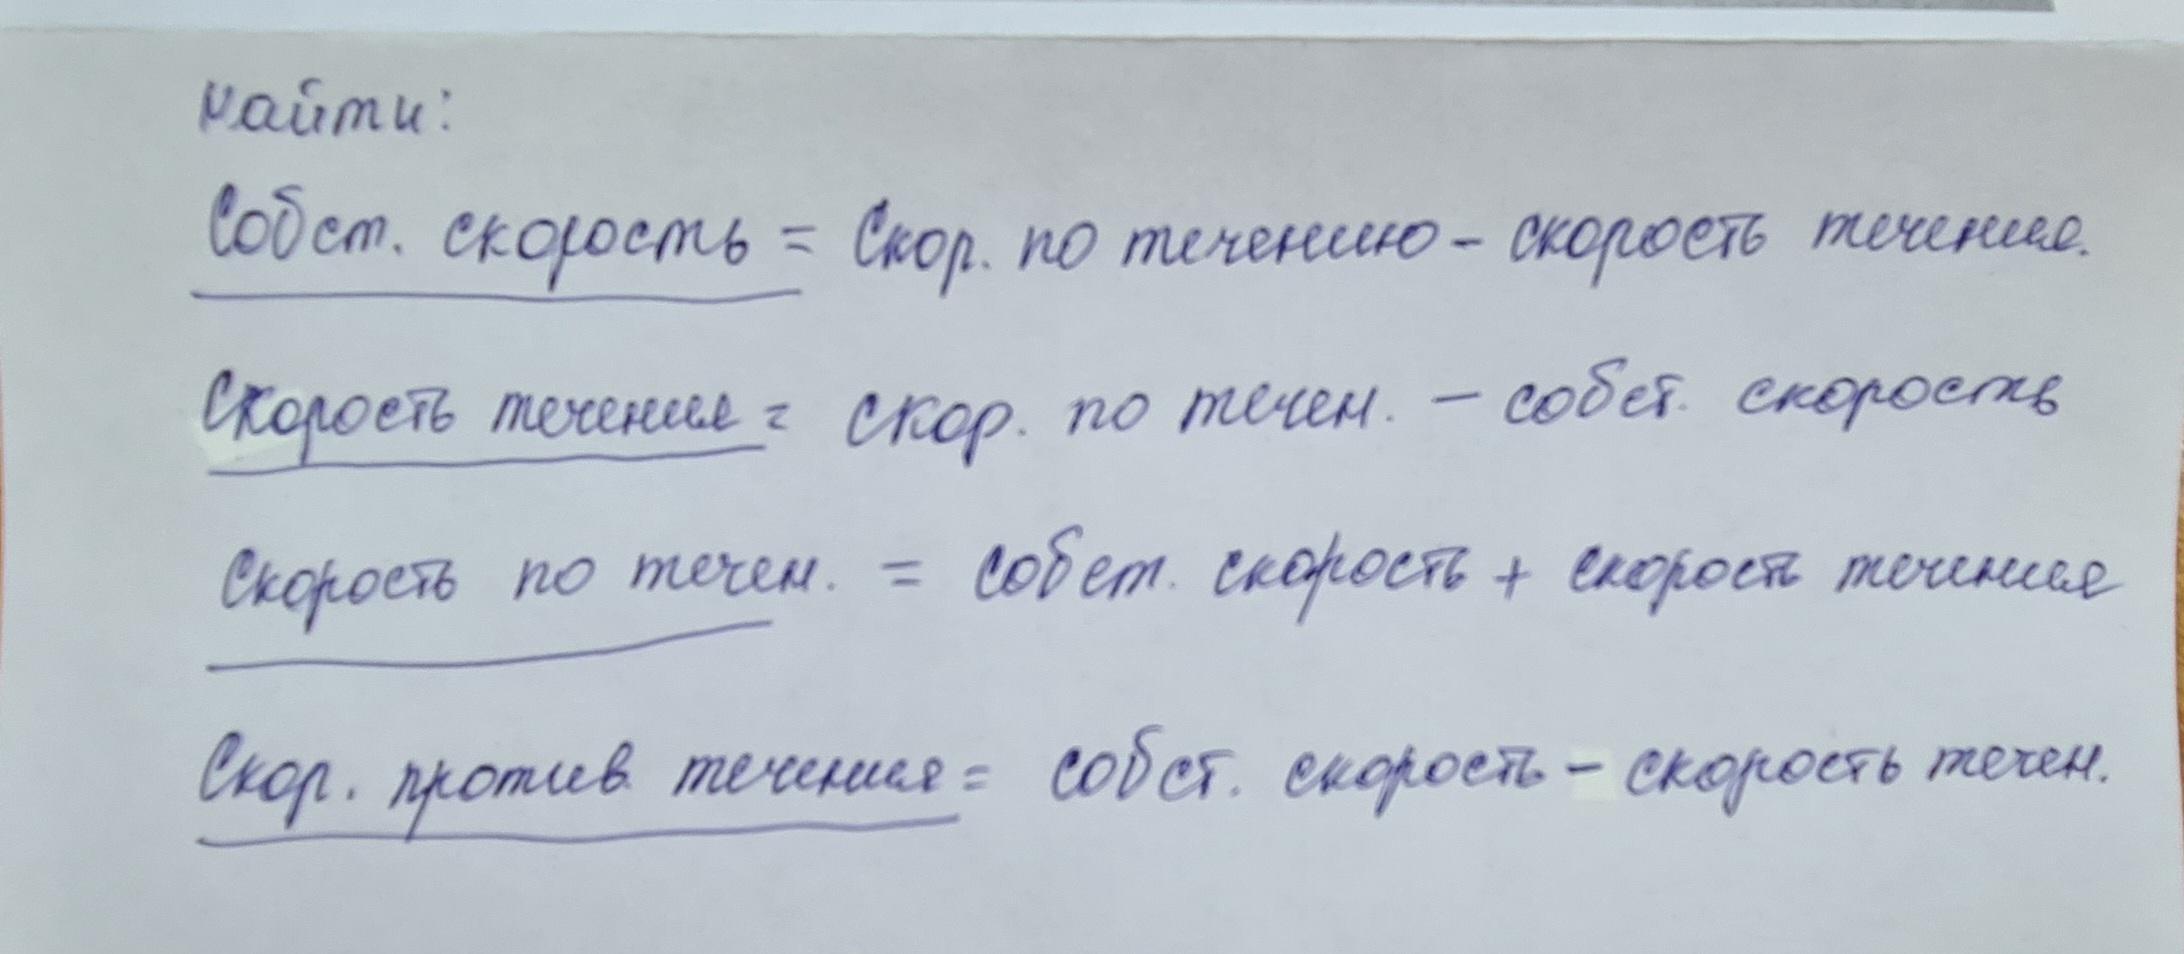 найти:
Собст. скорость = Скор. по течению - скорость течения.
Скорость течения = скор. по течен. - собст. скорость
Скорость по течен. = собст. скорость + скорость течения
Скор. против течения = собст. скорость - скорость течен.